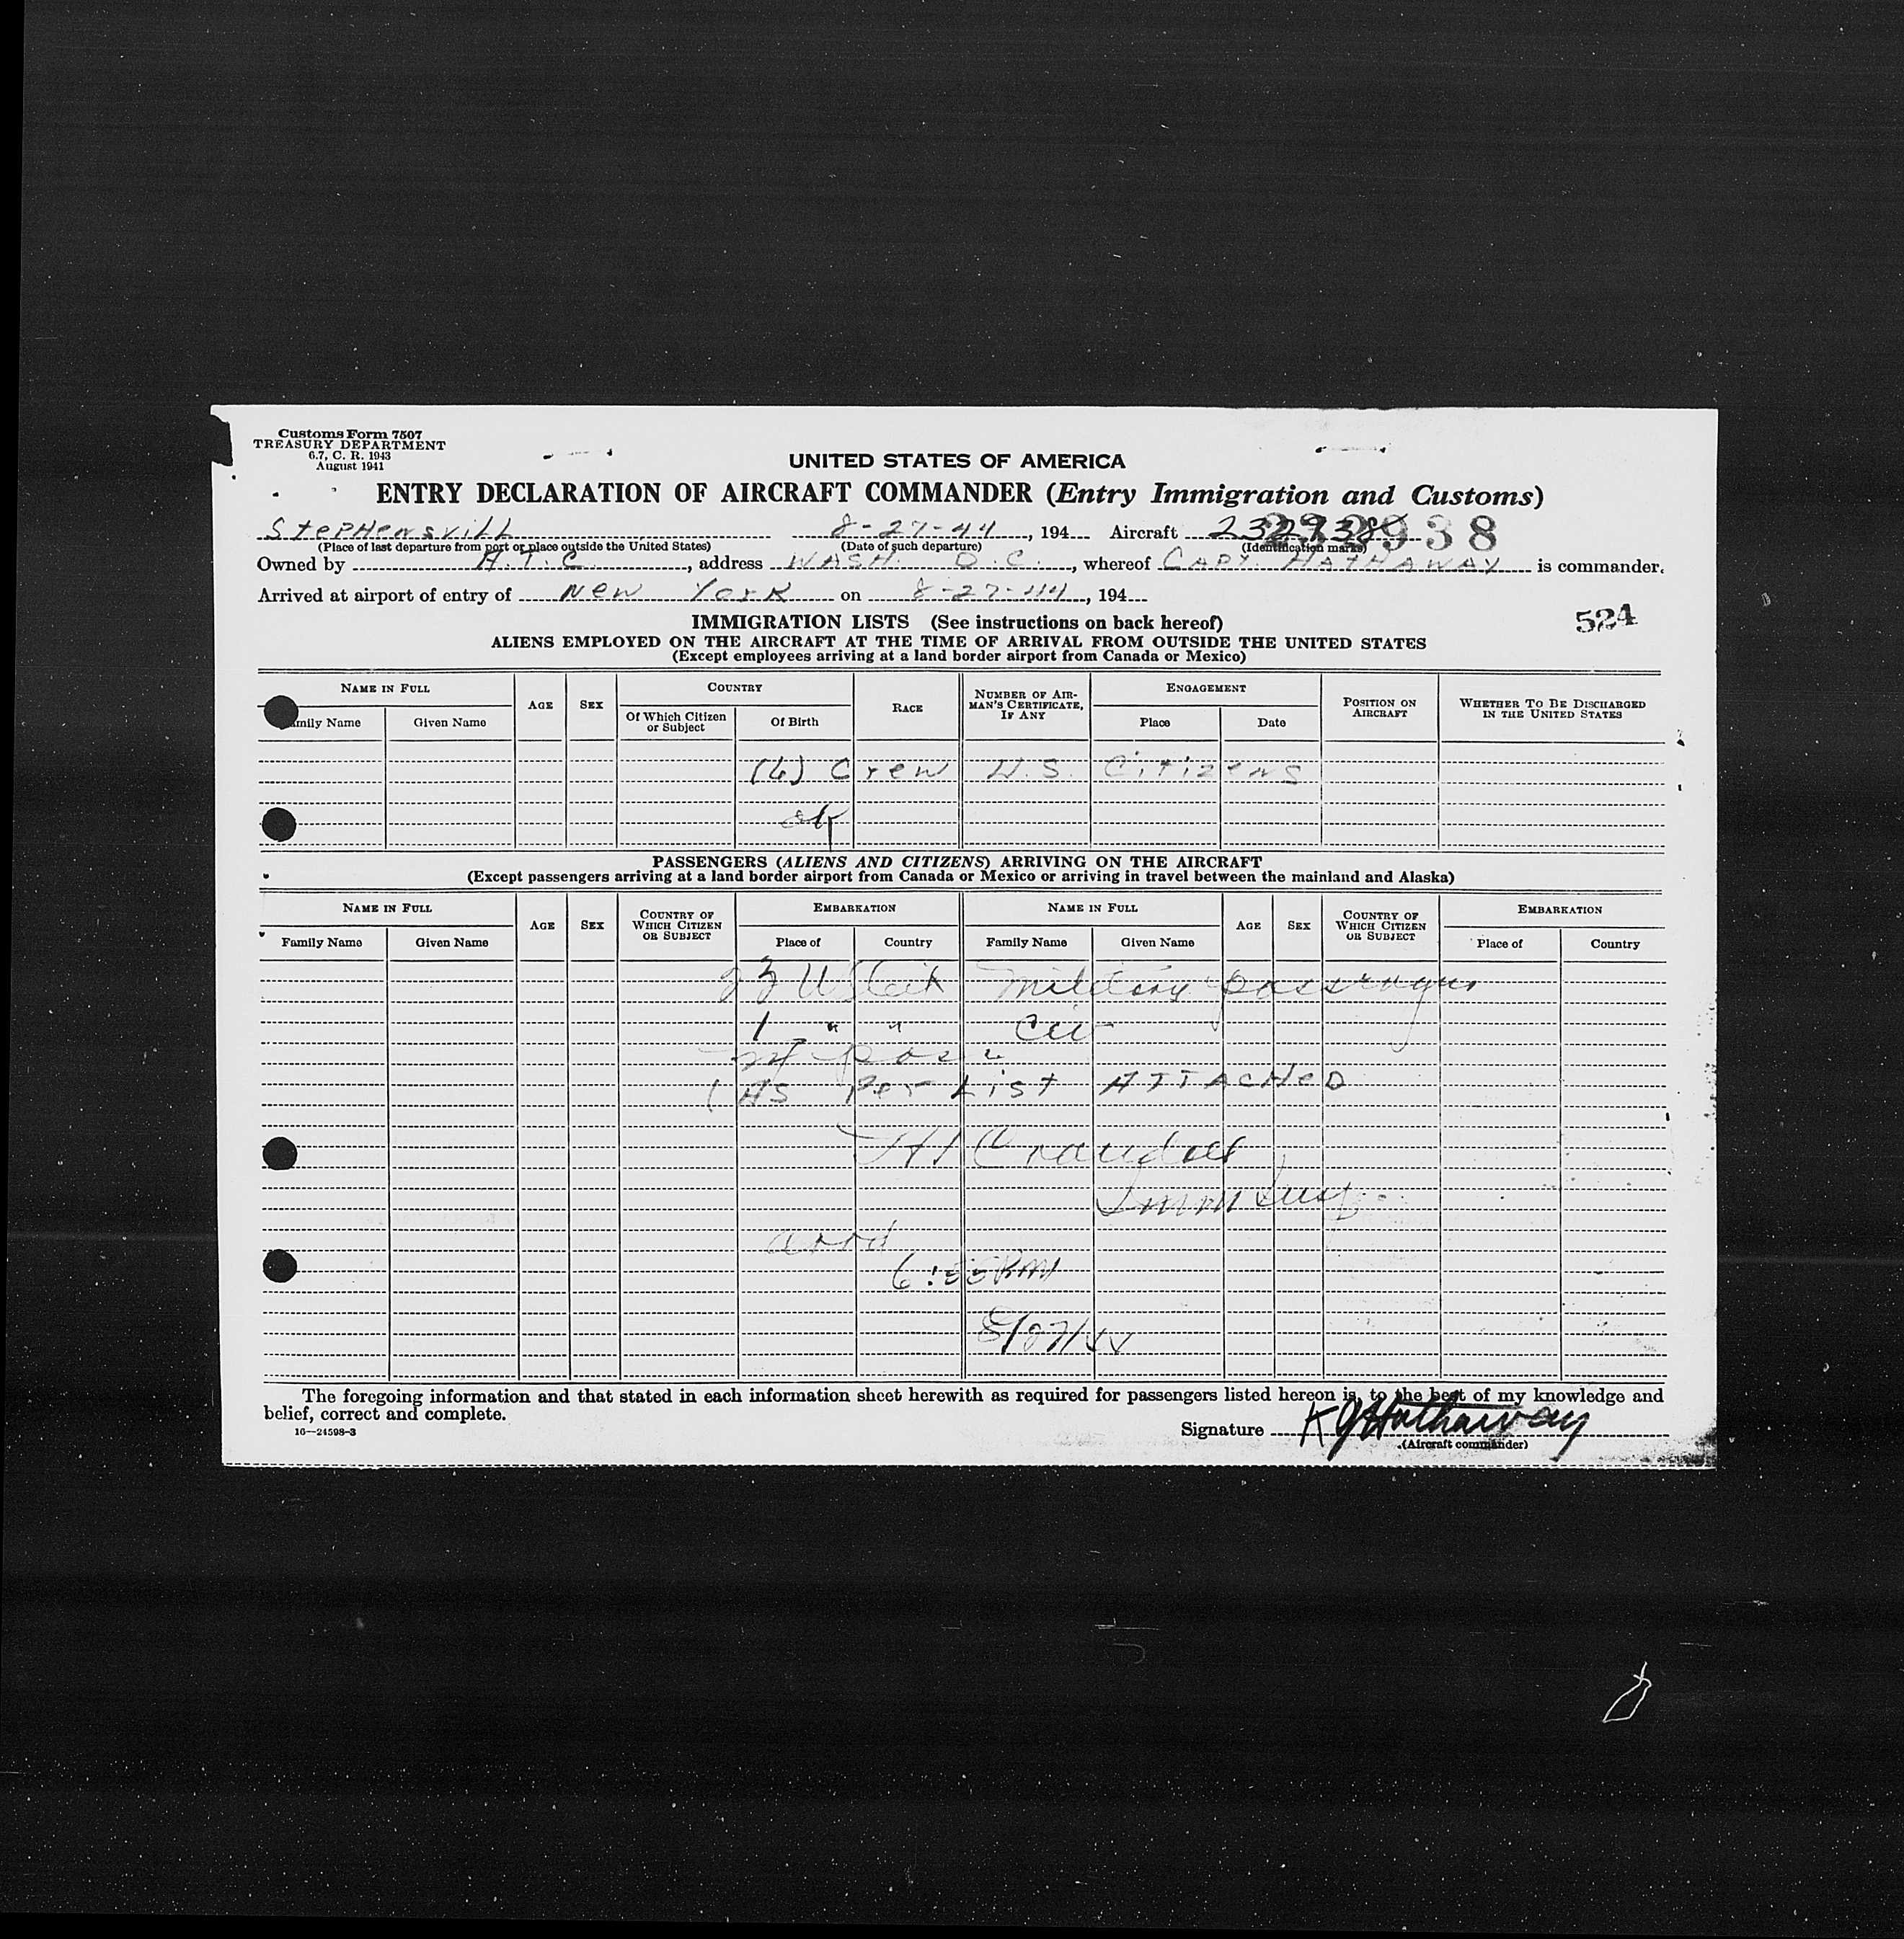 Customs Form 7507
TREASURY DEPARTMENT
6.7, C. R. 1943
August 1941
UNITED STATES OF AMERICA
ENTRY DECLARATION OF AIRCRAFT COMMANDER (Entry Immigration and Customs)
StePHensvill 8-27-44, 194 Aircraft 232938 232938
(Place of last departure from port or place outside the United States) (Date of such departure) (Identification marks)
Owned by A.T.C., address WASH. D.C., whereof CAPT. HATHAWAY is commander.
Arrived at airport of entry of New York on 8-27-44, 194
524
IMMIGRATION LISTS (See instructions on back hereof)
ALIENS EMPLOYED ON THE AIRCRAFT AT THE TIME OF ARRIVAL FROM OUTSIDE THE UNITED STATES
(Except employees arriving at a land border airport from Canada or Mexico)
NAME IN FULL AGE SEX COUNTRY RACE NUMBER OF AIRMAN'S CERTIFICATE, IF ANY ENGAGEMENT POSITION ON AIRCRAFT WHETHER TO BE DISCHARGED IN THE UNITED STATES
Family Name Given Name Of Which Citizen or Subject Of Birth Place Date
(6) Crew U.S. Citizens
ok
PASSENGERS (ALIENS AND CITIZENS) ARRIVING ON THE AIRCRAFT
(Except passengers arriving at a land border airport from Canada or Mexico or arriving in travel between the mainland and Alaska)
NAME IN FULL AGE SEX COUNTRY OF WHICH CITIZEN OR SUBJECT EMBARKATION NAME IN FULL AGE SEX COUNTRY OF WHICH CITIZEN OR SUBJECT EMBARKATION
Family Name Given Name Place of Country Family Name Given Name Place of Country
23 US Cit Military passengers
1 " " Civ
24 pass
(AS Per List ATTACHeD
H Crandall
Imm Insp.
arrd
6:55 PM
8/27/44
The foregoing information and that stated in each information sheet herewith as required for passengers listed hereon is, to the best of my knowledge and
belief, correct and complete.
Signature K J Hathaway
16—24598-3
(Aircraft commander)